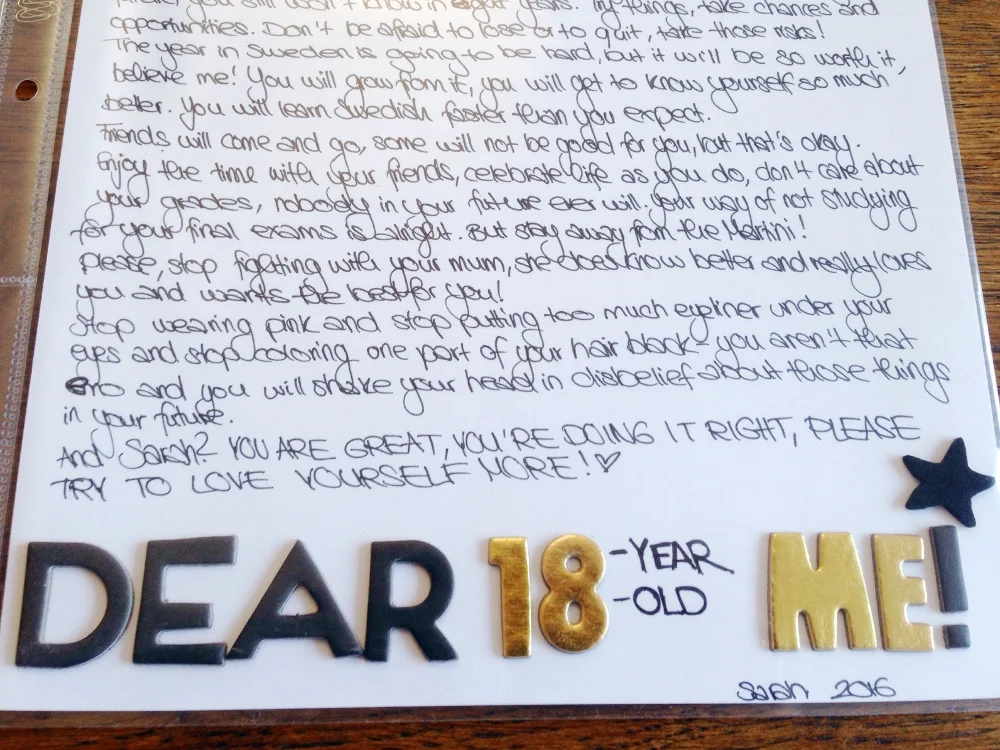 you still won't know in eight years. Try things, take chances and
opportunities. Don't be afraid to lose or to quit, take those risks!
The year in Sweden is going to be hard, but it will be so worth it,
believe me! You will grow from it, you will get to know yourself so much
better. You will learn Swedish faster than you expect.
Friends will come and go, some will not be good for you, but that's okay.
Enjoy the time with your friends, celebrate life as you do, don't care about
your grades, nobody in your future ever will. Your way of not studying
for your final exams is alright. But stay away from the Martini!
Please, stop fighting with your mum, she does know better and really loves
you and wants the best for you!
Stop wearing pink and stop putting too much eyeliner under your
eyes and stop coloring one part of your hair black - you aren't that
emo and you will shake your head in disbelief about those things
in your future.
And Sarah? YOU ARE GREAT, YOU'RE DOING IT RIGHT, PLEASE
TRY TO LOVE YOURSELF MORE!♡
DEAR 18 -YEAR -OLD ME!
Sarah 2016